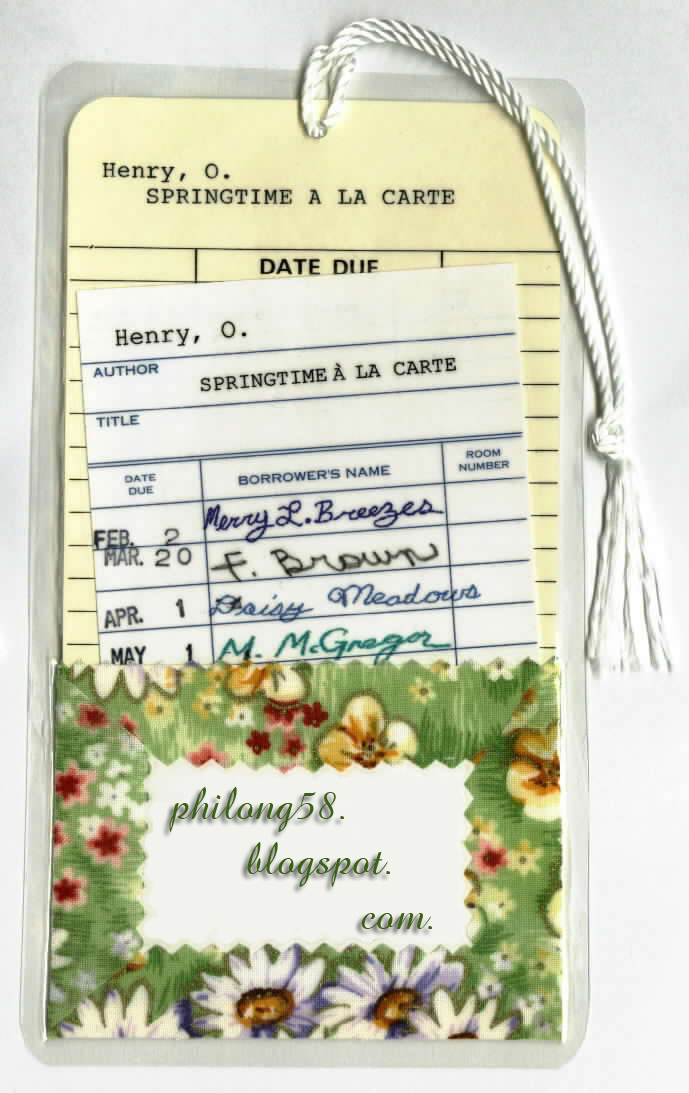 Henry, O.
SPRINGTIME A LA CARTE
DATE DUE
Henry, O.
AUTHOR
SPRINGTIME À LA CARTE
TITLE
DATE DUE BORROWER'S NAME ROOM NUMBER
FEB. 2 Merry L. Breezes
MAR. 20 F. Brown
APR. 1 Daisy Meadows
MAY 1 M. McGregor
philong58.
blogspot.
com.